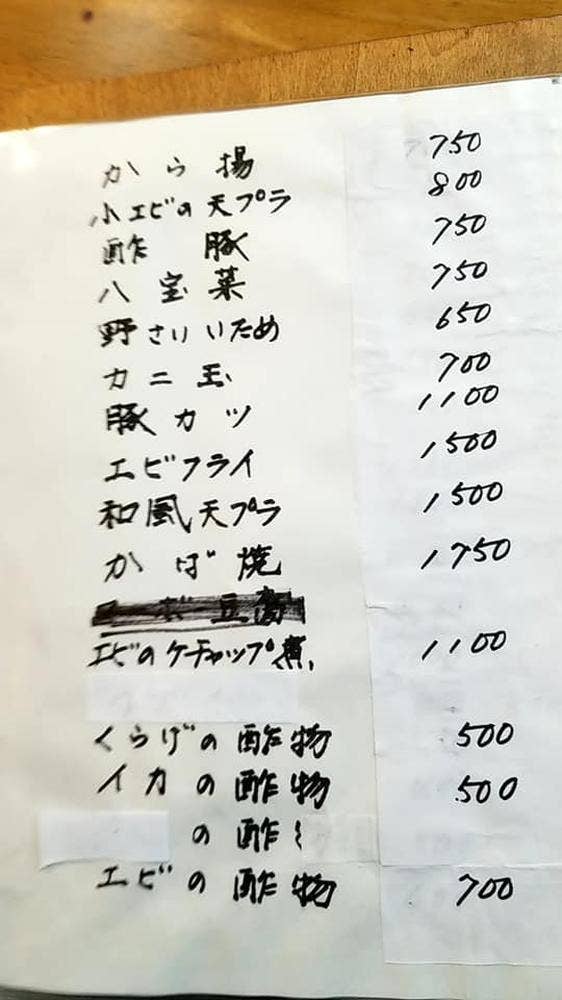 から揚 750
小エビの天プラ 800
酢豚 750
八宝菜 750
野さいいため 650
カニ玉 700
豚カツ 1100
エビフライ 1500
和風天プラ 1500
かば焼 1750
ーボー豆腐
エビのケチャップ煮 1100
くらげの酢物 500
イカの酢物 500
の酢
エビの酢物 700